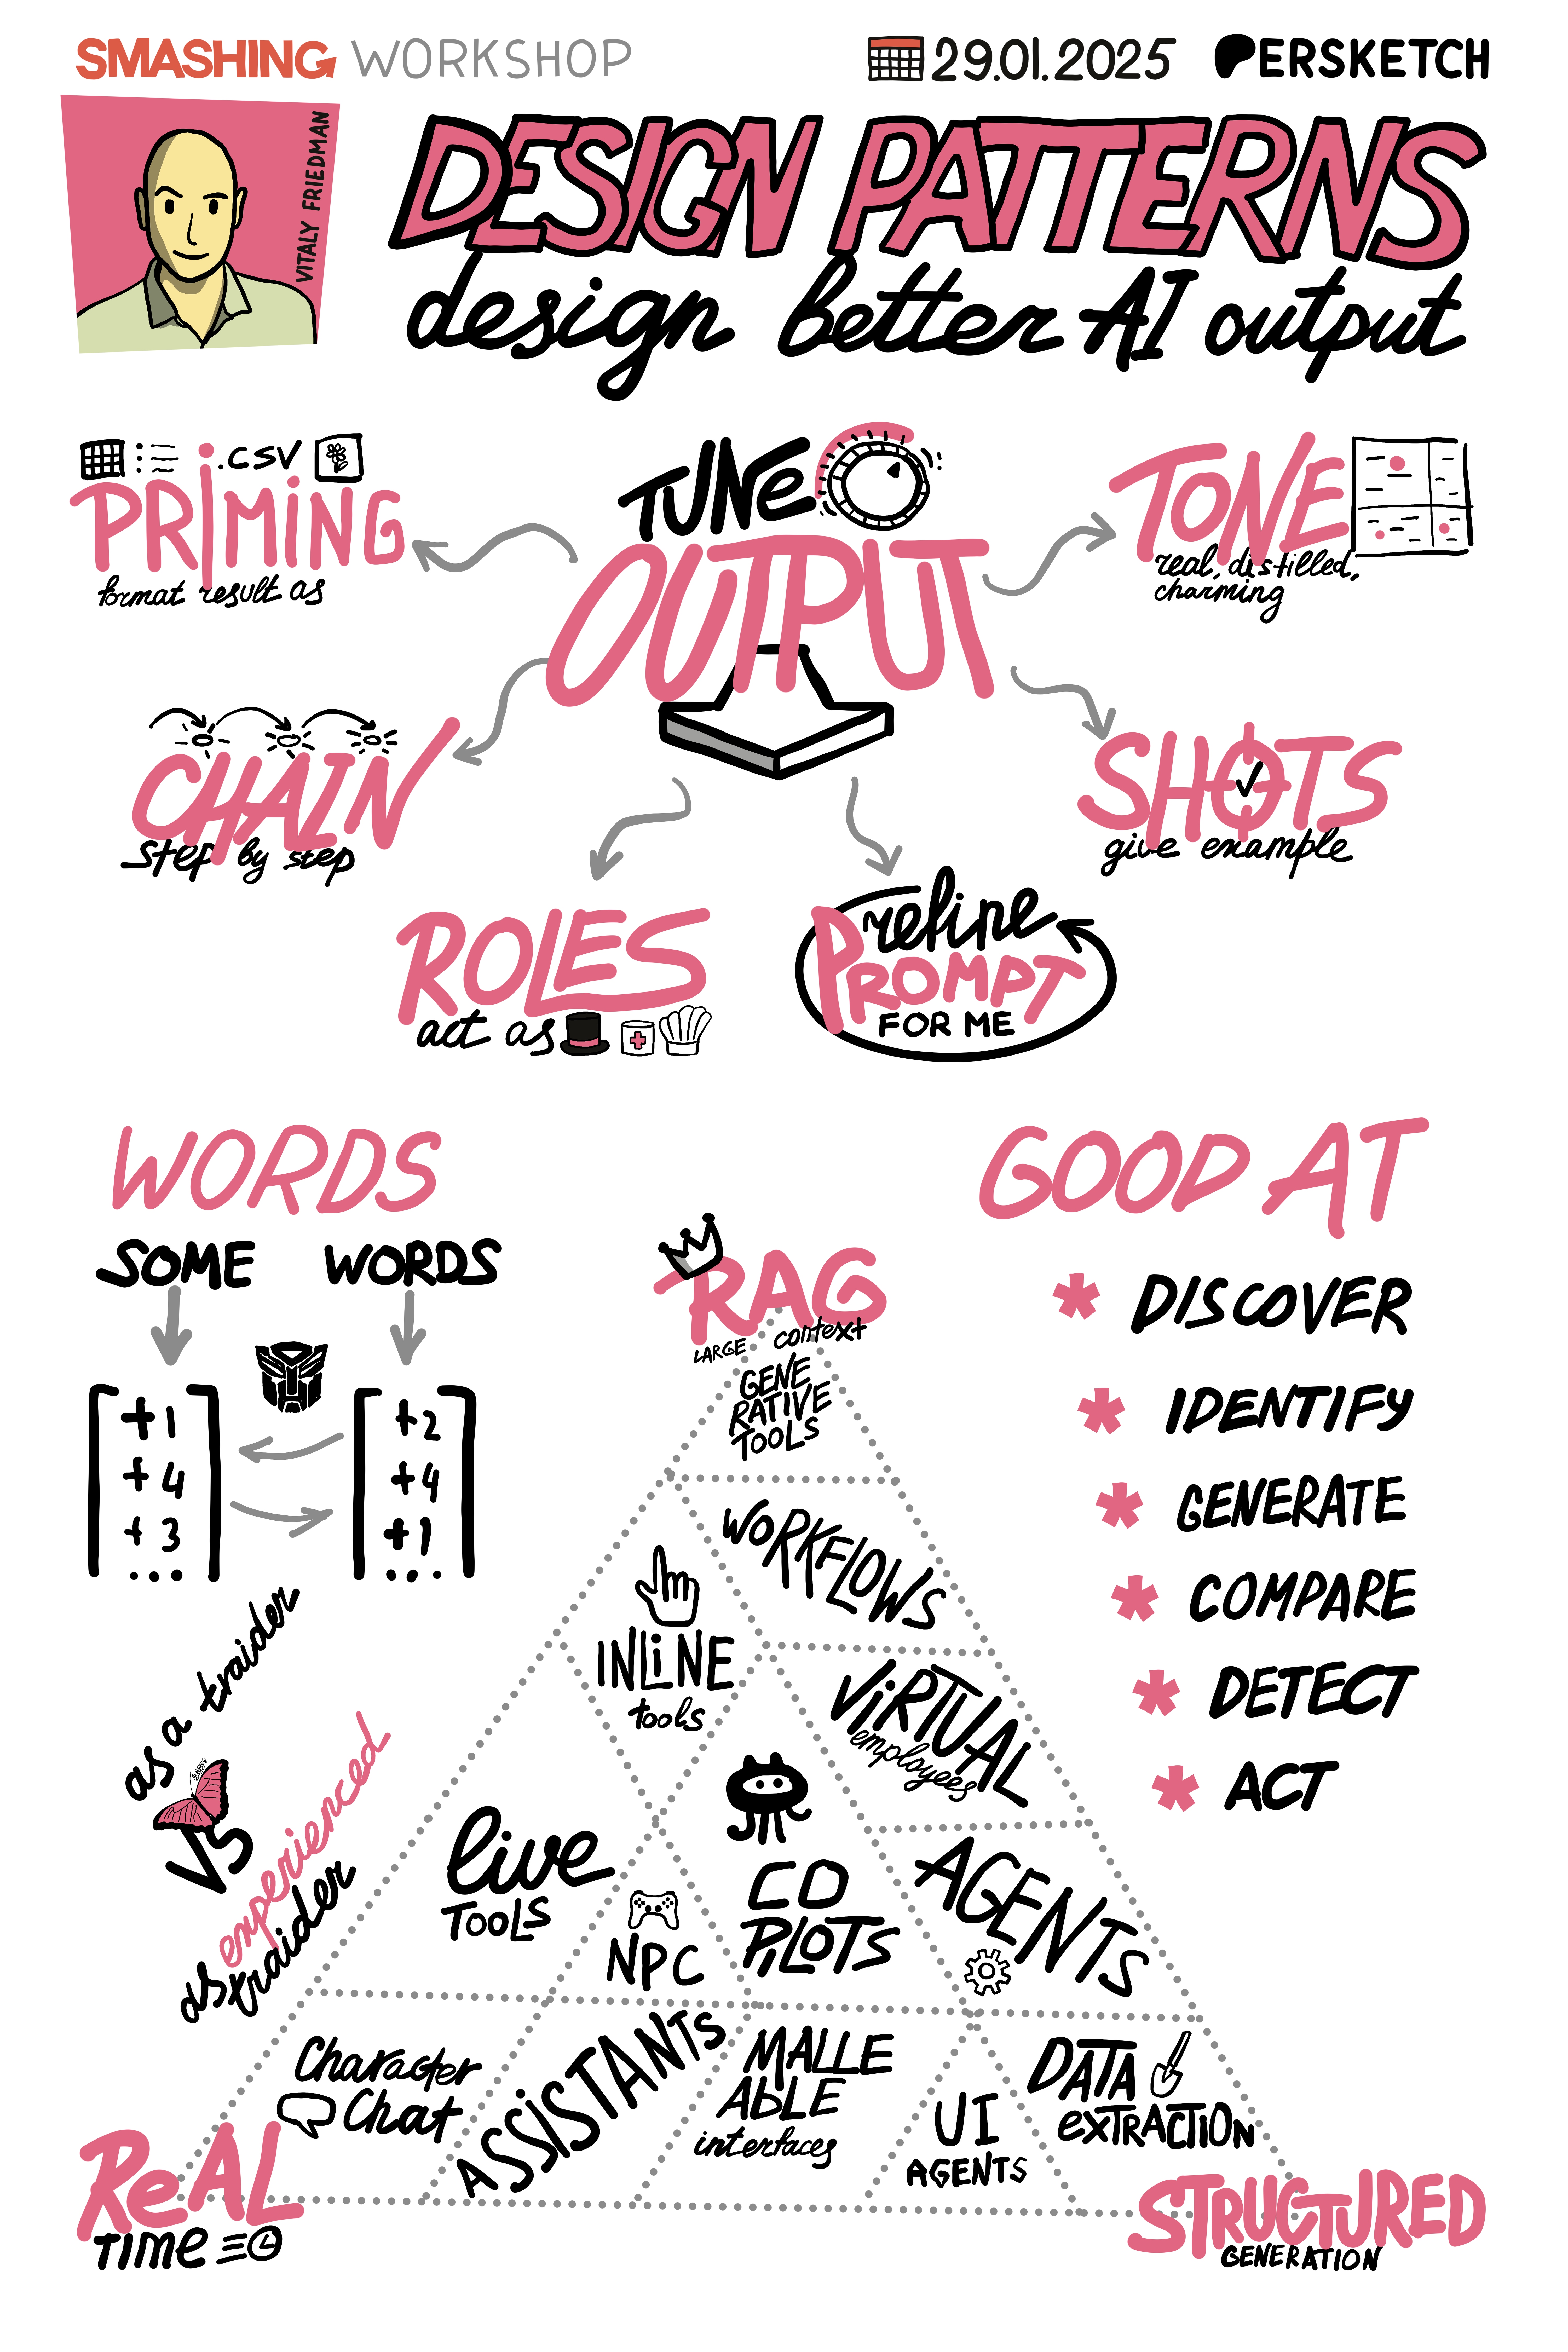 SMASHING WORKSHOP
29.01.2025
PERSKETCH
VITALY FRIEDMAN
DESIGN PATTERNS
design better AI output
.CSV
PRIMING
format result as
TUNE
OUTPUT
TONE
real, distilled,
charming
CHAIN
step by step
SHOTS
give example
ROLES
act as
refine
PROMPT
FOR ME
WORDS
SOME WORDS
+1
+4
+3
...
+2
+4
+1
...
as a traider
VS
as experienced
traider
GOOD AT
* DISCOVER
* IDENTIFY
* GENERATE
* COMPARE
* DETECT
* ACT
RAG
LARGE context
GENE
RATIVE
TOOLS
WORKFLOWS
INLINE
tools
VIRTUAL
employees
live
TOOLS
NPC
CO
PILOTS
AGENTS
Character
Chat
ASSISTANTS
MALLE
ABLE
interfaces
UI
AGENTS
DATA
EXTRACTION
ReAL
TIME
STRUCTURED
GENERATION